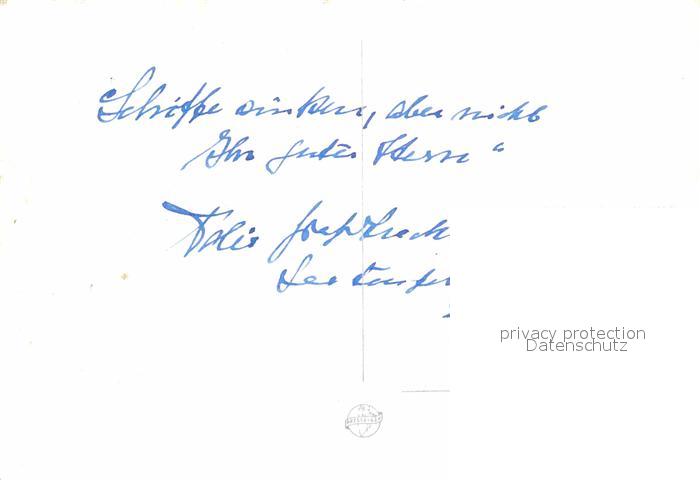 Schiffe sinken, aber nicht
Ihr guter Herr"
Felix Graf Luck
See
privacy protection
Datenschutz